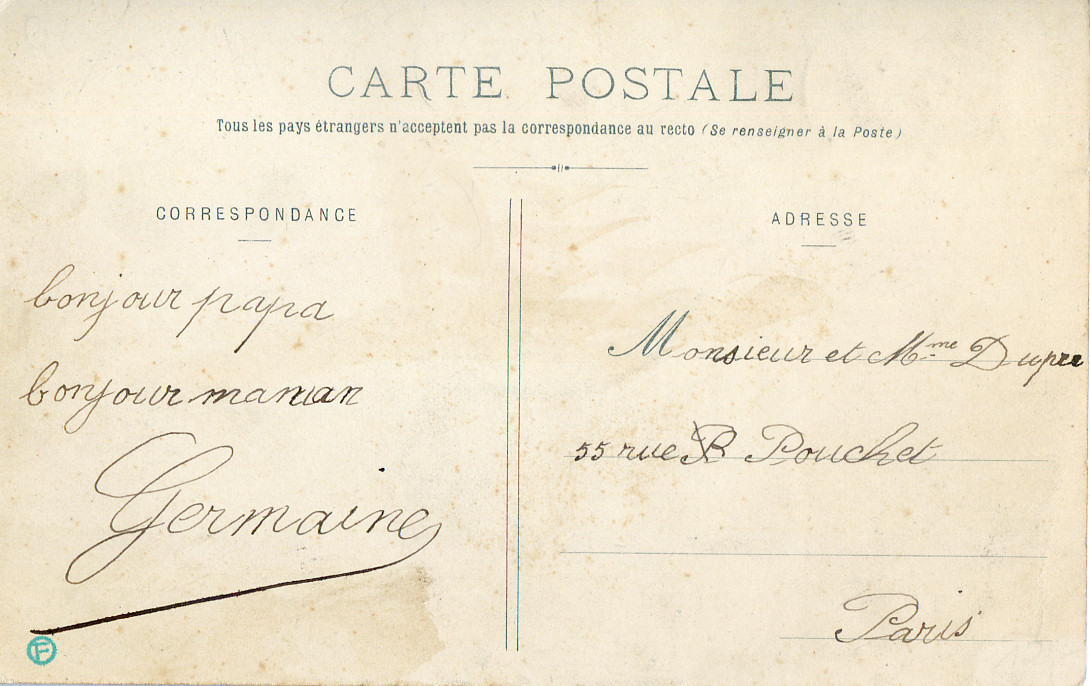 CARTE POSTALE
Tous les pays étrangers n'acceptent pas la correspondance au recto (Se renseigner à la Poste)
CORRESPONDANCE
bonjour papa
bonjour maman
Germaine
ADRESSE
Monsieur et Mme Dupre
55 rue Pouchet
Paris